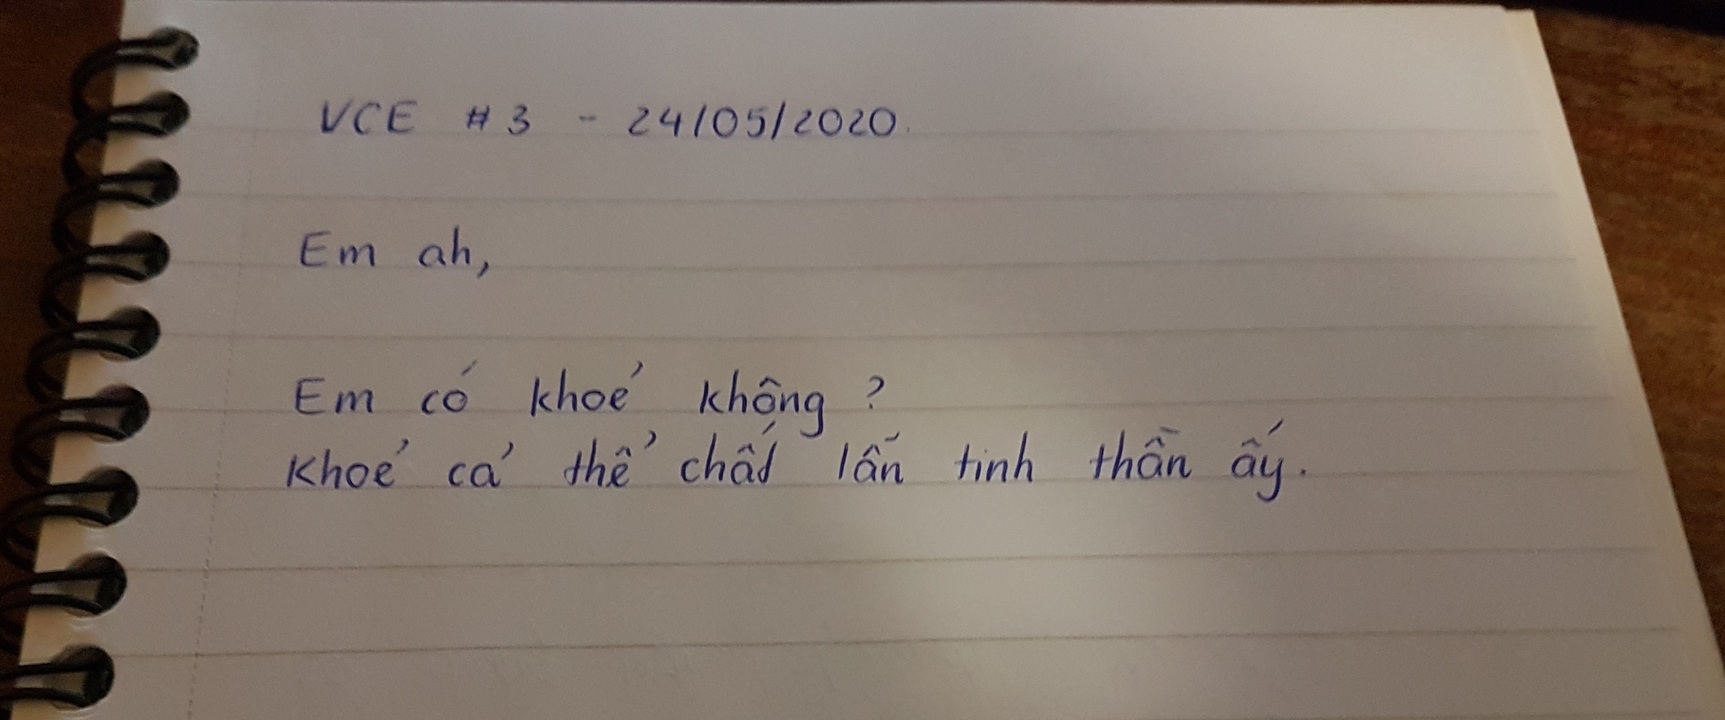 VCE #3 - 24/05/2020.
Em ah,
Em có khoẻ không?
Khoẻ cả thể chất lẫn tinh thần ấy.